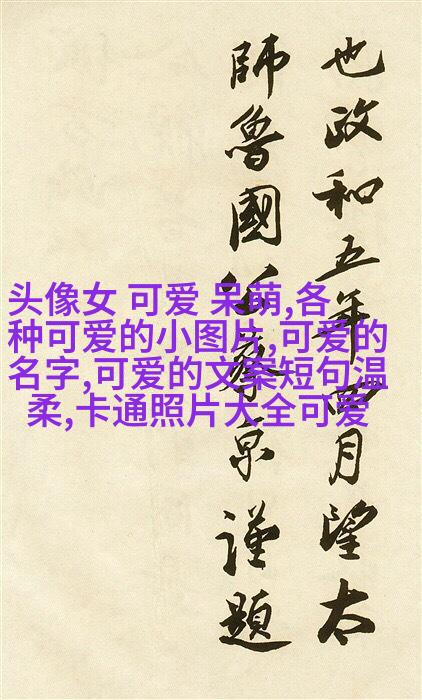 也政和五年四月望太
師魯國公蔡京謹題
头像女 可爱 呆萌,各
种可爱的小图片,可爱的
名字,可爱的文案短句温
柔,卡通照片大全可爱